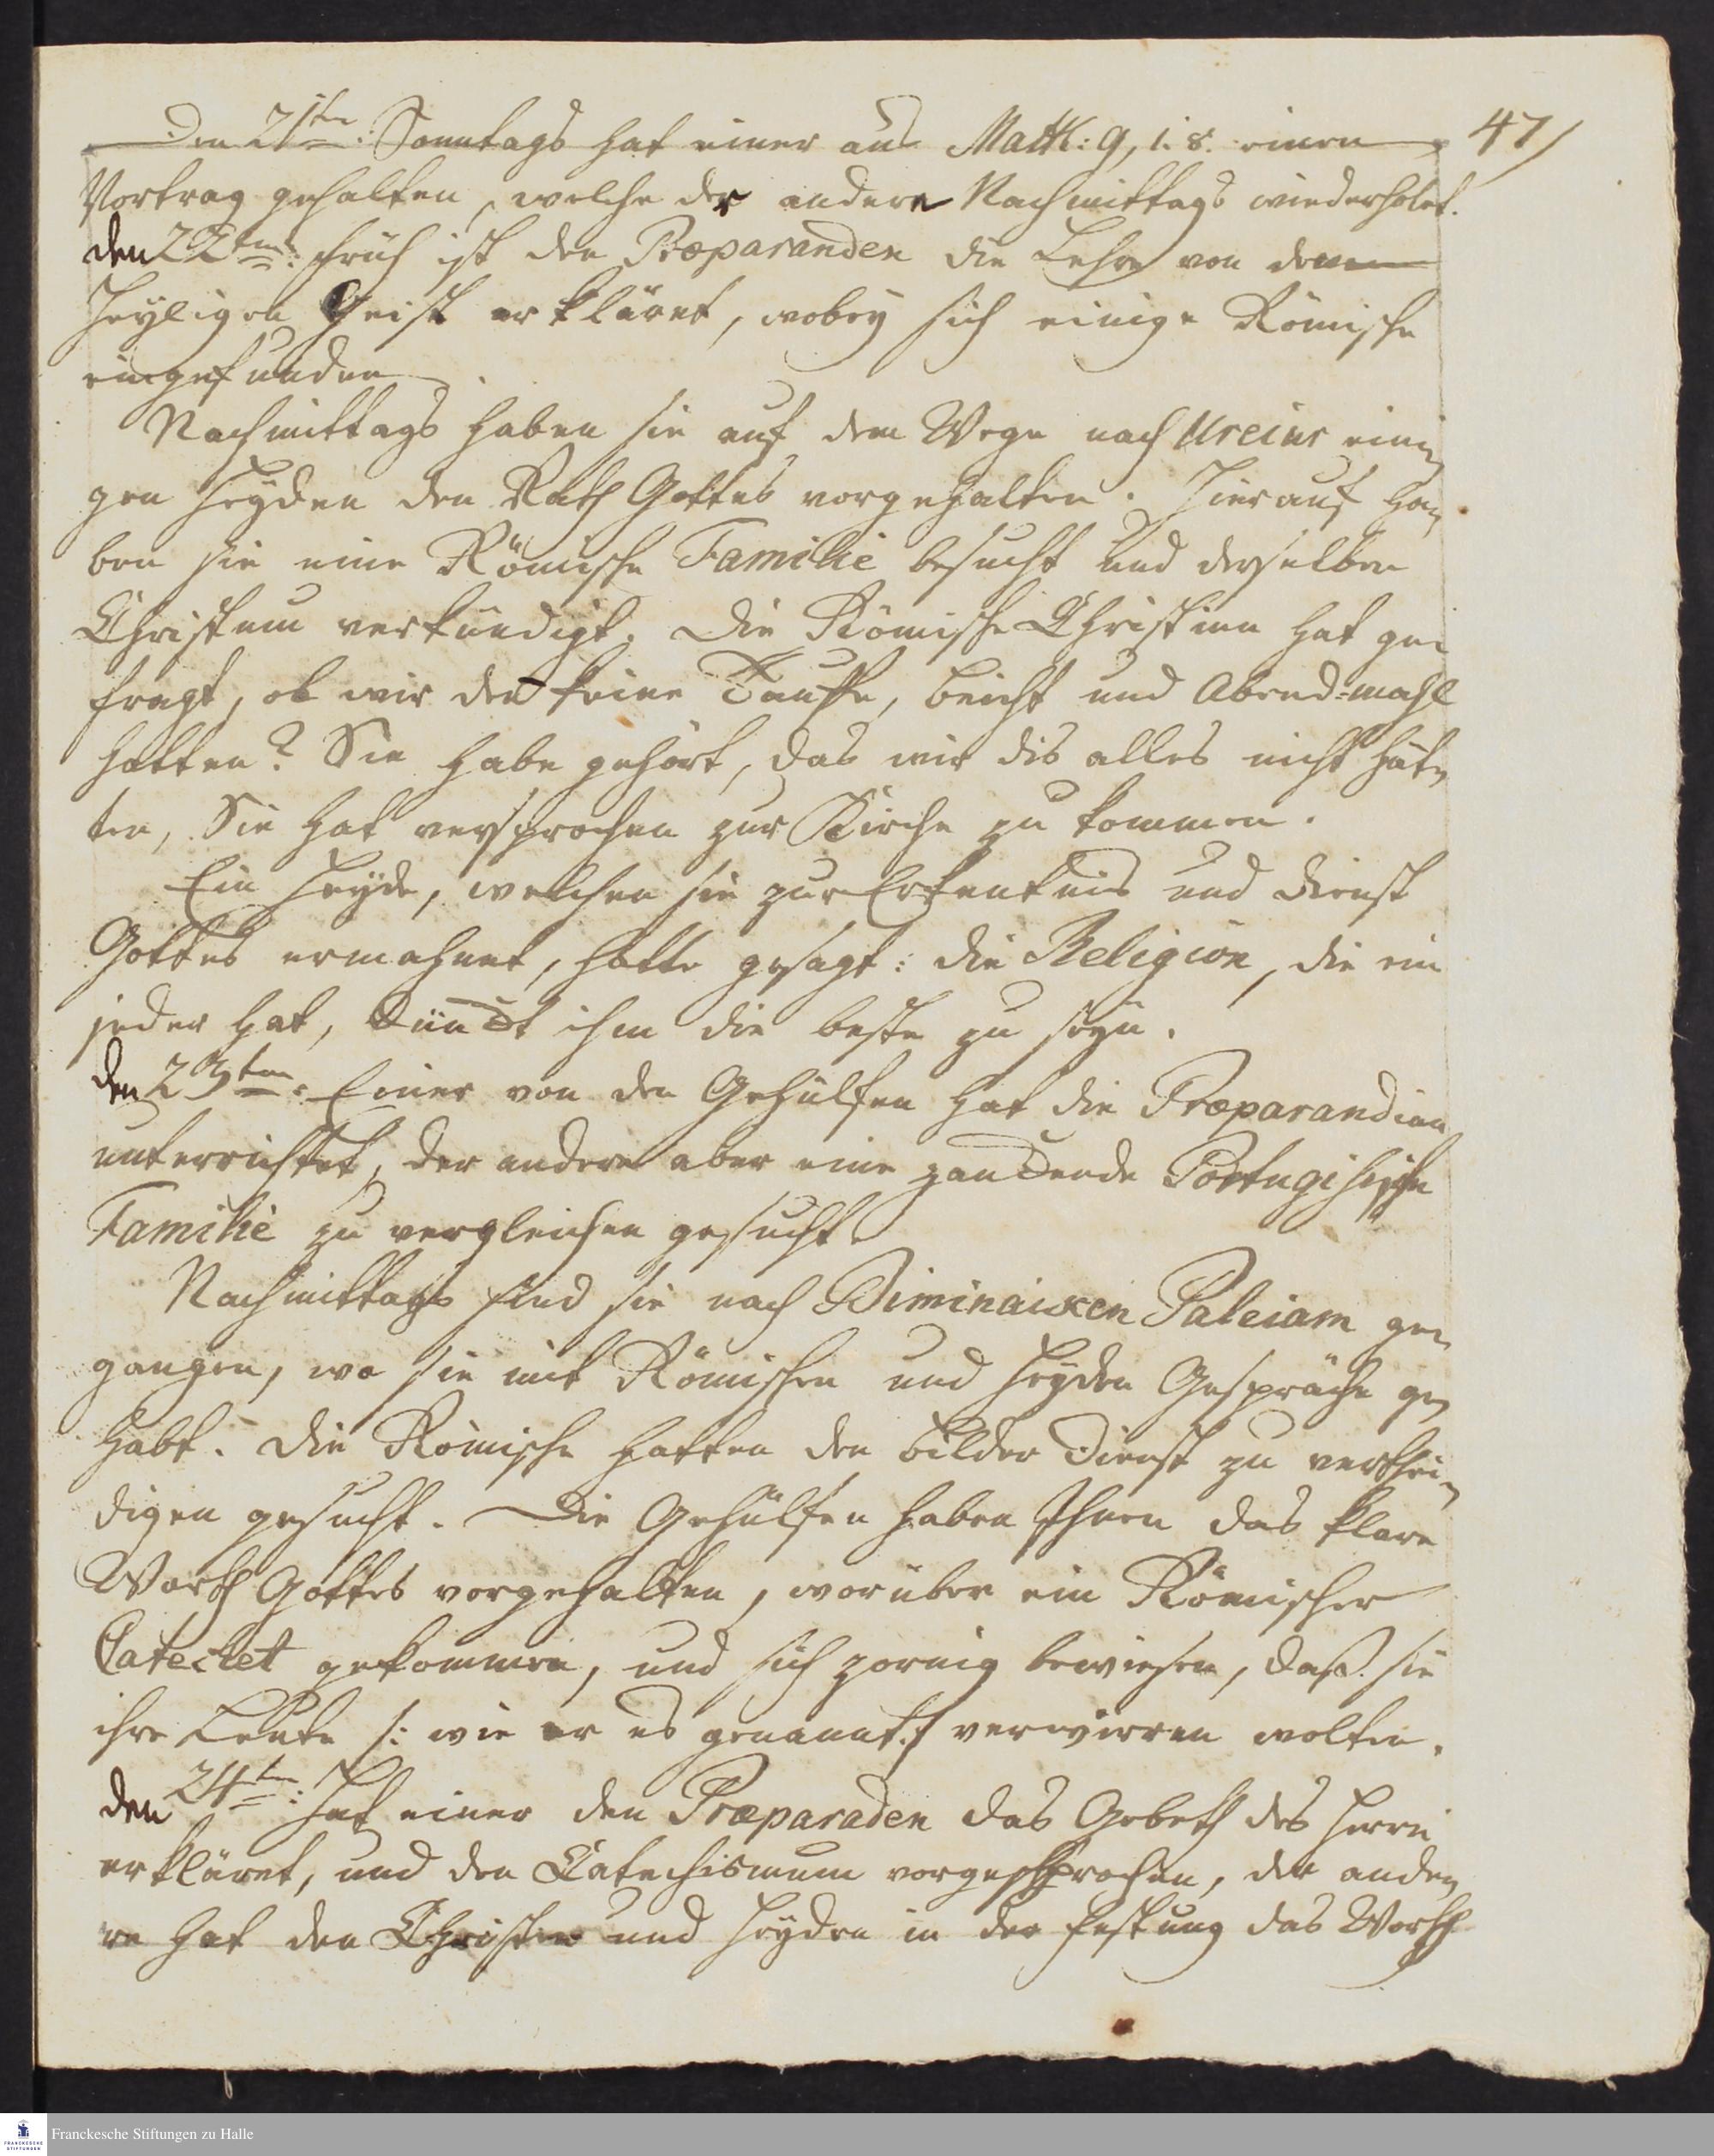 47/
Den 21ten: Sonntags hat einer aus Matth: 9, 1. 8. einen
Vortrag gehalten, welche der andere Nachmittags wiederholet.
den 22ten: früh ist den Præparanden die Lehre von dem
Heyligen Geist erkläret, wobey sich einige Römische
eingefunden.
Nachmittags haben sie auf dem Wege nach Ureiur eini¬
gen Heyden den Rath Gottes vorgehalten. Hierauf ha¬
ben sie eine Römische Familie besucht und derselben
Christum verkündigt. Die Römische Christinn hat ge¬
fragt, ob wir den keine Tauffe, beicht und Abend=mahl
hatten? Sie habe gehört, das wir dis alles nicht hät¬
ten, Sie hat versprochen zur Kirche zu kommen.
Ein Heyde, welchen sie zur Erkentnis und dienst
Gottes ermahnet, hatte gesagt: die Religion, die ein
jeder hat, dünckt ihm die beste zu seyn.
den 23ten: Einer von den Gehülfen hat die Præparandien
unterrichtet, der andere aber eine zanckende Portugisische
Familie zu vergleichen gesucht.
Nachmittags sind sie nach Biminaiken Paleiam ge¬
gangen, wo sie mit Römischen und Heyden Gespräche ge¬
habt. Die Römische hatten den bilder Dienst zu verthei¬
digen gesucht. Die Gehülfen haben Ihnen das klare
Worth Gottes vorgehalten, worüber ein Römischer
Catechet gekommen, und sich zornig bewiesen, daß sie
ihre Leute /: wie er es genannt:/ verwirren wolten.
den 24ten: Hat einer den Præparaden das Gebeth des Herrn
erkläret, und den Catechismum vorgesprochen, der ande¬
re hat den Christen und Heyden in der Festung das Worth
Franckesche Stiftungen zu Halle